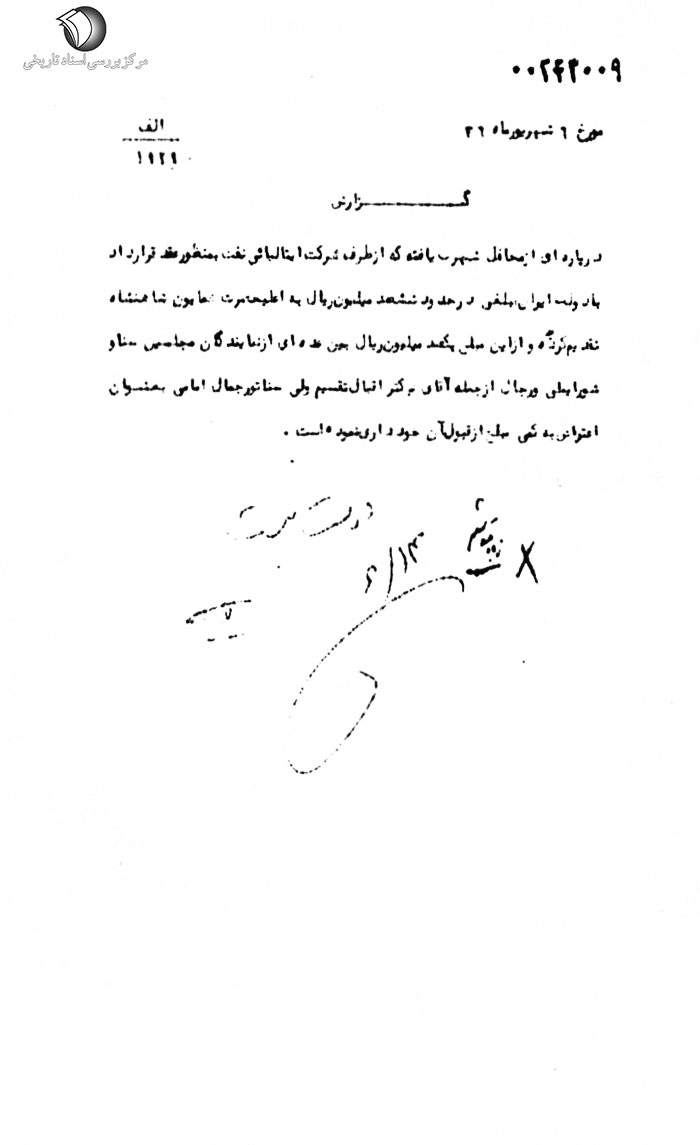 مرکز بررسی اسناد تاریخی
۰۰۲۴۲۰۰۹
مورخ ۶ شهریورماه ۳۶
الف
۱۹۲۹
گزارش
در پاره ای از محافل شهرت یافته که از طرف شرکت ایتالیائی نفت بمنظور عقد قرارداد
با دولت ایران مبلغی در حدود ششصد میلیون ریال به اعلیحضرت همایون شاهنشاه
تقدیم گردیده و از این مبلغ یکصد میلیون ریال بین عده ای از نمایندگان مجلسین سنا و
شورایملی و رجال از جمله آقای دکتر اقبال تقسیم ولی سناتور جمال امامی بعنوان
اعتراض به کمی مبلغ از قبول آن خودداری نموده است .
۶/۱۴